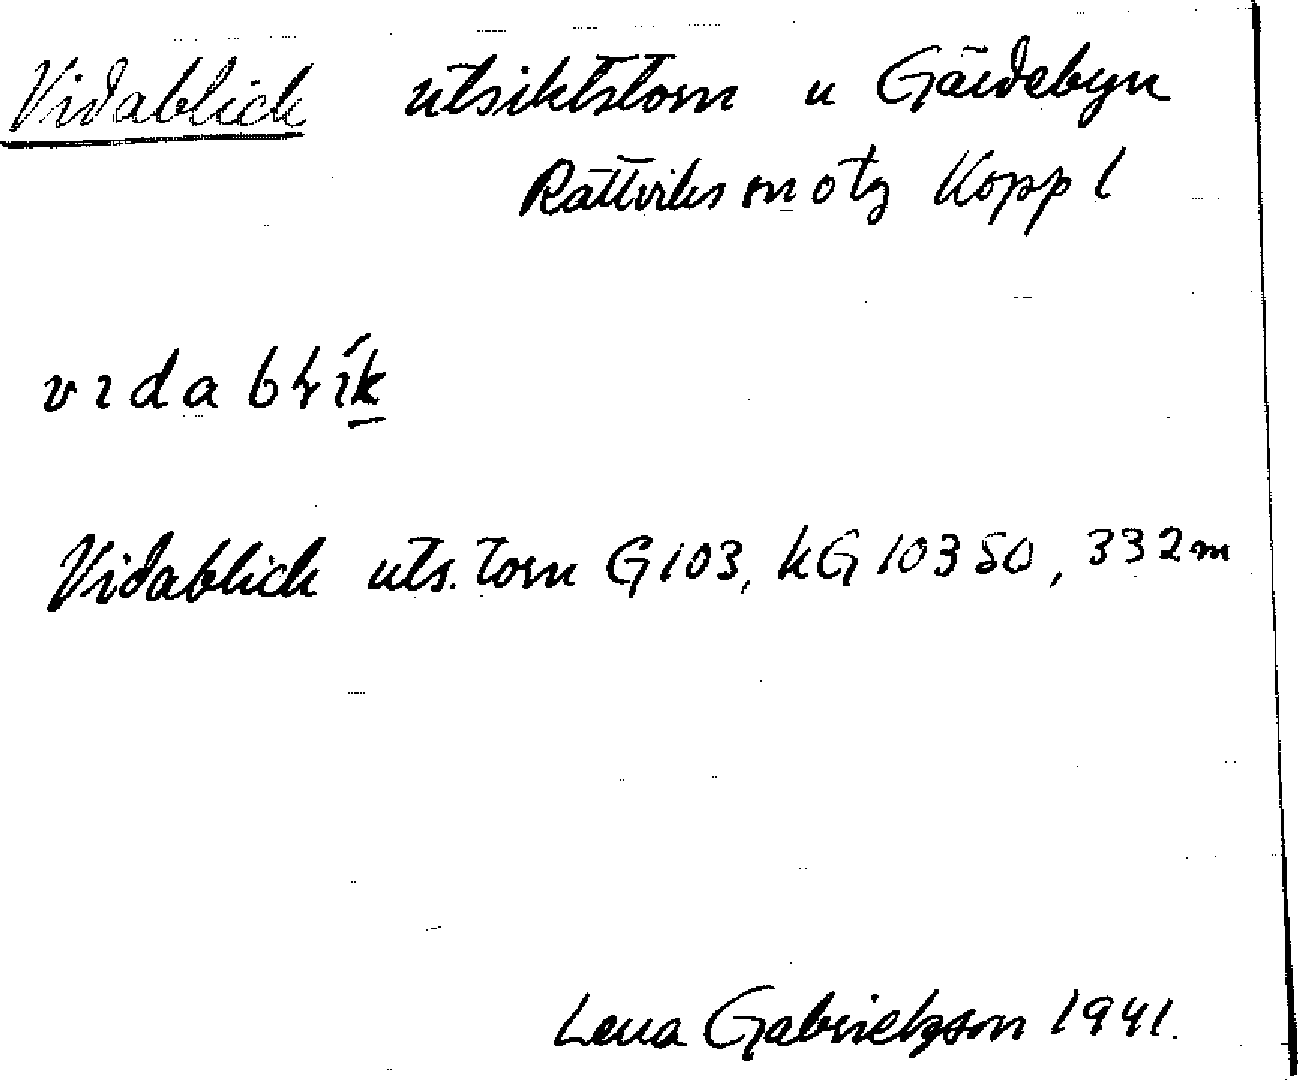 Vidablick utsiktstorn u Gärdebyn
Rättviks sn o tg Kopp l
vıdabłı́k
Vidablick uts.torn G103, kG 10350, 332m
Lena Gabrielsson 1941.